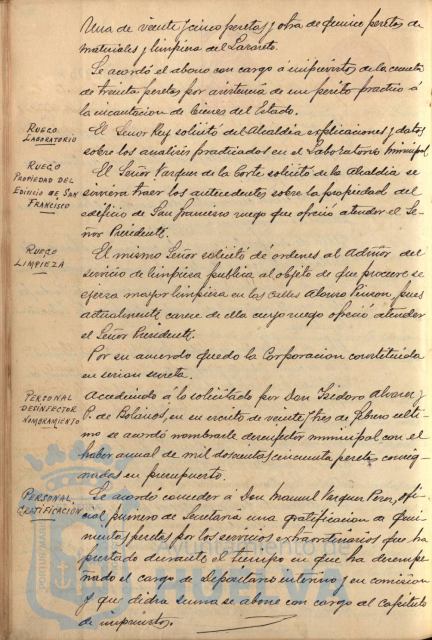 Una de veinte y cinco pesetas y otra de quince pesetas de
materiales y limpieza del Lazareto.
Se acordó el abono con cargo á imprevistos de la cuenta
de treinta pesetas por asistencia de un perito práctico á
la incautacion de bienes del Estado.
RUEGO
LABORATORIO
El Señor Rey solicitó del Alcaldia explicaciones y datos
sobre los analisis practicados en el Laboratorio Municipal
RUEGO
PROPIEDAD DEL
EDIFICIO DE SAN
FRANCISCO
El Señor Vazquez de la Corte solicitó de la Alcaldia se
sirviera traer los antecedentes sobre la propiedad del
edificio de San Francisco ruego que ofreció atender el Se-
ñor Presidente.
RUEGO
LIMPIEZA
El mismo Señor solicitó dé ordenes al Admor del
servicio de limpieza publica al objeto de que procure se
ejerza mayor limpieza en las calles Alonso Pinzon, pues
actualmente carece de ella cuyo ruego ofreció atender
el Señor Presidente.
Por su acuerdo quedó la Corporacion constituida
en sesion secreta.
PERSONAL
DESINFECTOR
NOMBRAMIENTO
Accediendo á lo solicitado por Don Isidoro Alvarez y
P. de Bolaños, en su escrito de veinte y tres de Febrero ulti-
mo se acordó nombrarle desinfector municipal con el
haber anual de mil doscientas cincuenta pesetas consig-
nadas en presupuesto.
PERSONAL
GRATIFICACIÓN
Se acordó conceder á Don Manuel Vazquez Perez, ofi-
cial primero de Secretaria una gratificacion de quin-
ientas pesetas por los servicios extraordinarios que ha
prestado durante el tiempo en que ha desempe-
ñado el cargo de Depositario interino y en comision
y que dicha suma se abone con cargo al Capitulo
de imprevistos.
HUELVA